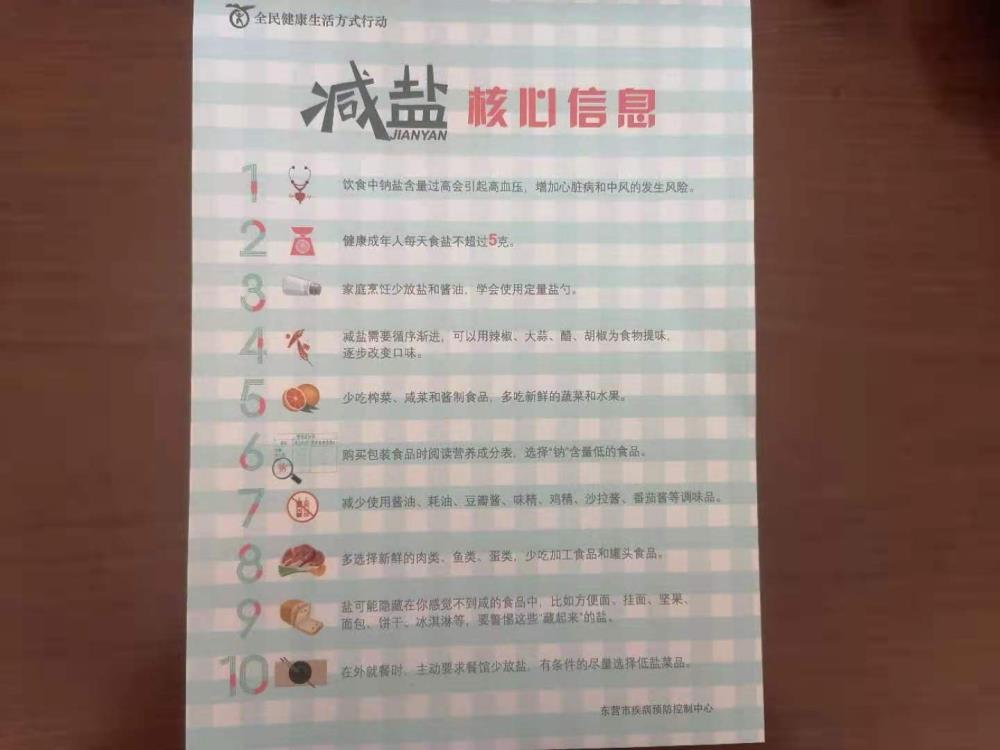 全民健康生活方式行动
减盐 核心信息
JIANYAN
1 饮食中钠盐含量过高会引起高血压，增加心脏病和中风的发生风险。
2 健康成年人每天食盐不超过5克。
3 家庭烹饪少放盐和酱油，学会使用定量盐勺。
4 减盐需要循序渐进，可以用辣椒、大蒜、醋、胡椒为食物提味，
逐步改变口味。
5 少吃榨菜、咸菜和酱制食品，多吃新鲜的蔬菜和水果。
6 购买包装食品时阅读营养成分表，选择“钠”含量低的食品。
7 减少使用酱油、耗油、豆瓣酱、味精、鸡精、沙拉酱、番茄酱等调味品。
8 多选择新鲜的肉类、鱼类、蛋类，少吃加工食品和罐头食品。
9 盐可能隐藏在你感觉不到咸的食品中，比如方便面、挂面、坚果、
面包、饼干、冰淇淋等，要警惕这些“藏起来”的盐。
10 在外就餐时，主动要求餐馆少放盐，有条件的尽量选择低盐菜品。
东营市疾病预防控制中心